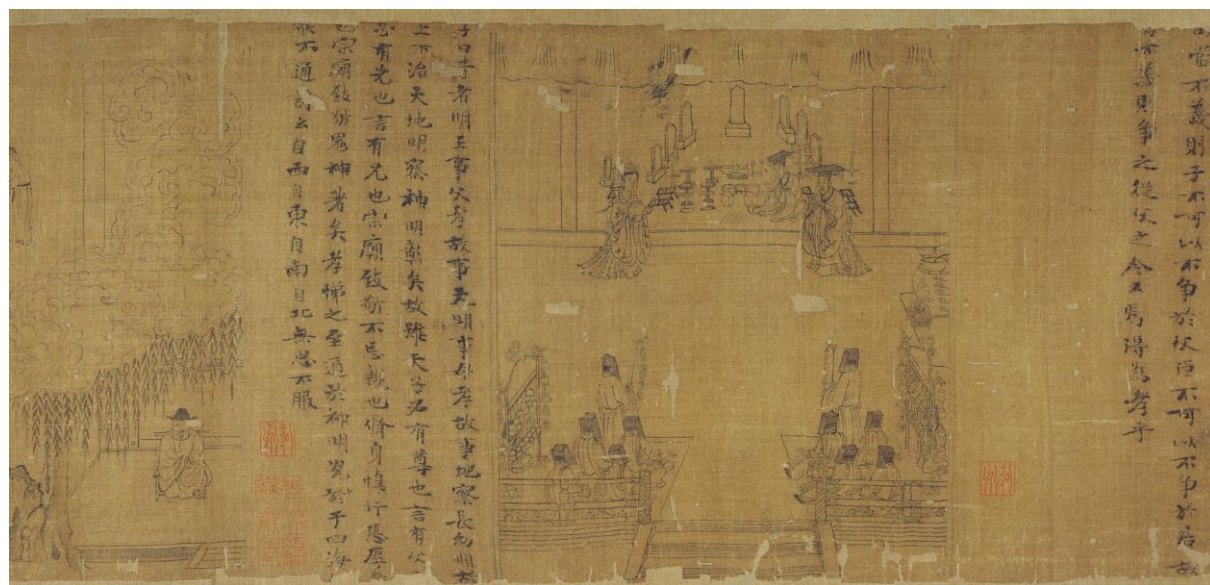 當不義則子不可以不爭於父臣不可以不爭於君故
當不義則爭之從父之令又焉得為孝乎
子曰昔者明王事父孝故事天明事母孝故事地察長幼順故
上下治天地明察神明彰矣故雖天子必有尊也言有父
必有先也言有兄也宗廟致敬不忘親也脩身慎行恐辱
也宗廟致敬鬼神著矣孝悌之至通於神明光於于四海
所不通詩云自西自東自南自北無思不服